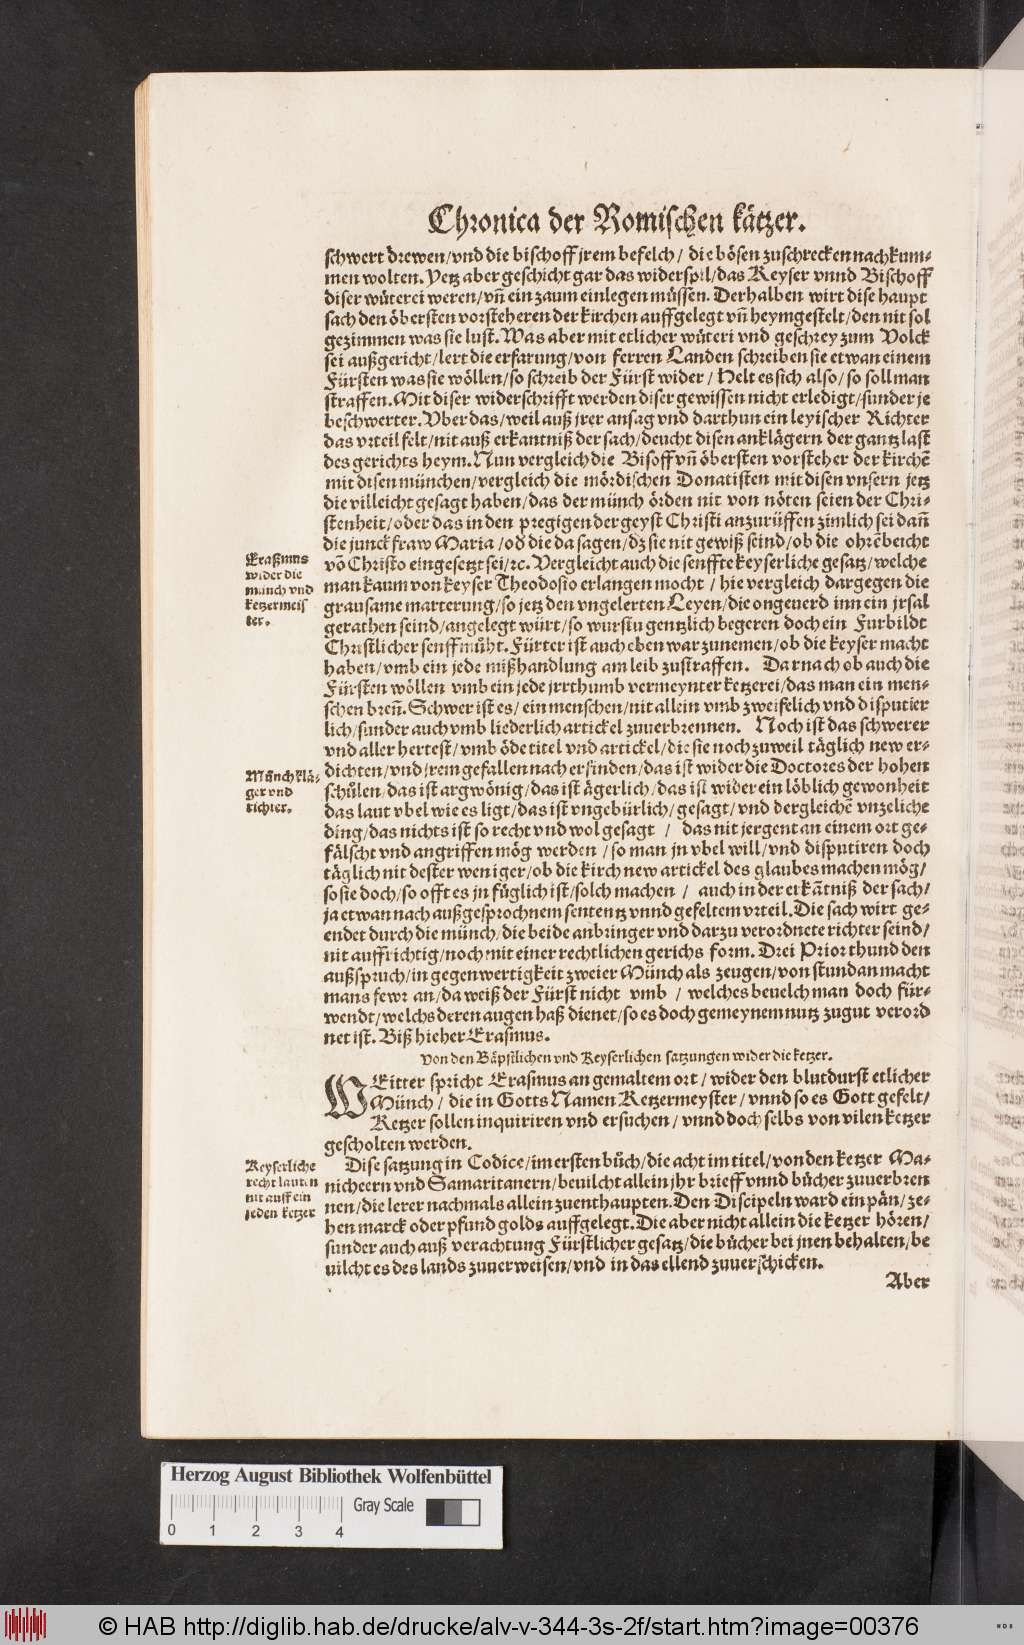 Chronica der Romischen kätzer.
schwert drewen/vnd die bischoff jrem befelch/ die bösen zuschrecken nachkum⸗
men wolten. Yetz aber geschicht gar das widerspil/das Keyser vnnd Bischoff
diser wüterei weren/vñ ein zaum einlegen müssen. Derhalben wirt dise haupt
sach den öbersten vorsteheren der kirchen auffgelegt vñ heymgestelt/den nit sol
gezimmen was sie lust. Was aber mit etlicher wüteri vnd geschrey zum Volck
sei außgericht/lert die erfarung/von ferren Landen schreiben sie etwan einem
Fürsten was sie wöllen/so schreib der Fürst wider/ Helt es sich also/so soll man
straffen. Mit diser widerschrifft werden diser gewissen nicht erledigt/sunder je
beschwerter. Vber das/weil auß jrer ansag vnd darthun ein leyischer Richter
das vrteil felt/nit auß erkantniß der sach/deucht disen anklägern der gantz last
des gerichts heym. Nun vergleich die Bisoff vñ öbersten vorsteher der kirchẽ
mit disen münchen/vergleich die mördischen Donatisten mit disen vnsern jetz
die villeicht gesagt haben/das der münch örden nit von nöten seien der Chri⸗
stenheit/oder das in den pregigen der geyst Christi anzurüffen zimlich sei dañ
die junckfraw Maria/oď die da sagen/dz sie nit gewiß seind/ob die ohrẽbeicht
võ Christo eingesetzt sei/ꝛc. Vergleicht auch die senffte keyserliche gesatz/welche
man kaum von keyser Theodosio erlangen mocht/ hie vergleich dargegen die
grausame marterung/so jetz den vngelerten Leyen/die ongeuerd inn ein jrsal
gerathen seind/angelegt würt/so wurstu gentzlich begeren doch ein Furbildt
Christlicher senffmüht. Fürter ist auch eben war zunemen/ob die keyser macht
haben/vmb ein jede mißhandlung am leib zustraffen. Darnach ob auch die
Fürsten wöllen vmb ein jede jrrthumb vermeynter ketzerei/das man ein men⸗
schen breñ. Schwer ist es/ ein menschen/nit allein vmb zweifelich vnd disputier
lich/sunder auch vmb liederlich artickel zuuerbrennen. Noch ist das schwerer
vnd aller hertest/vmb öde titel vnd artickel/die sie noch zuweil täglich new er⸗
dichten/vnd jrem gefallen nach erfinden/das ist wider die Doctores der hohen
schůlen/das ist argwönig/das ist ägerlich/das ist wider ein löblich gewonheit
das laut vbel wie es ligt/das ist vngebürlich/ gesagt/vnd dergleichẽ vnzeliche
ding/das nichts ist so recht vnd wol gesagt / das nit jergent an einem ort ge⸗
fälscht vnd angriffen mög werden /so man jn vbel will/vnd disputiren doch
täglich nit dester weniger/ob die kirch new artickel des glaubes machen mög/
so sie doch/so offt es jn füglich ist/solch machen / auch in der erkãtniß der sach/
ja etwan nach außgesprochnem sententz vnnd gefeltem vrteil. Die sach wirt ge⸗
endet durch die münch/die beide anbringer vnd darzu verordnete richter seind/
nit auffrichtig/noch mit einer rechtlichen gerichs form. Drei Prior thund den
außspruch/in gegenwertigkeit zweier Münch als zeugen/von stundan macht
mans fewr an/da weiß der Fürst nicht vmb / welches beuelch man doch für⸗
wendt/welchs deren augen haß dienet/so es doch gemeynem nutz zugut verord
net ist. Biß hieher Erasmus.
Eraßmus
wider die
münch vnd
ketzermeis
ter.
Münch klä⸗
ger vnd
richter.
Von den Bäpstlichen vnd Keyserlichen satzungen wider die ketzer.
WEitter spricht Erasmus an gemaltem ort/ wider den blutdurst etlicher
Münch/ die in Gotts Namen Ketzermeyster/ vnnd so es Gott gefelt/
Ketzer sollen inquiriren vnd ersuchen/ vnnd doch selbs von vilen ketzer
gescholten werden.
Keyserliche
recht lauten
nit auff ein
jeden ketzer
Dise satzung in Codice/im ersten bůch/die acht im titel/von den ketzer Ma⸗
nicheern vnd Samaritanern/beuilcht allein jhr brieff vnnd bücher zuuerbren
nen/die lerer nachmals allein zuenthaupten. Den Discipeln ward ein pän/ze⸗
hen marck oder pfund golds auffgelegt. Die aber nicht allein die ketzer hören/
sunder auch auß verachtung Fürstlicher gesatz/die bücher bei jnen behalten/be
uilcht es des lands zuuerweisen/vnd in das ellend zuuerschicken.
Aber
Herzog August Bibliothek Wolfenbüttel
Gray Scale
0 1 2 3 4
© HAB http://diglib.hab.de/drucke/alv-v-344-3s-2f/start.htm?image=00376